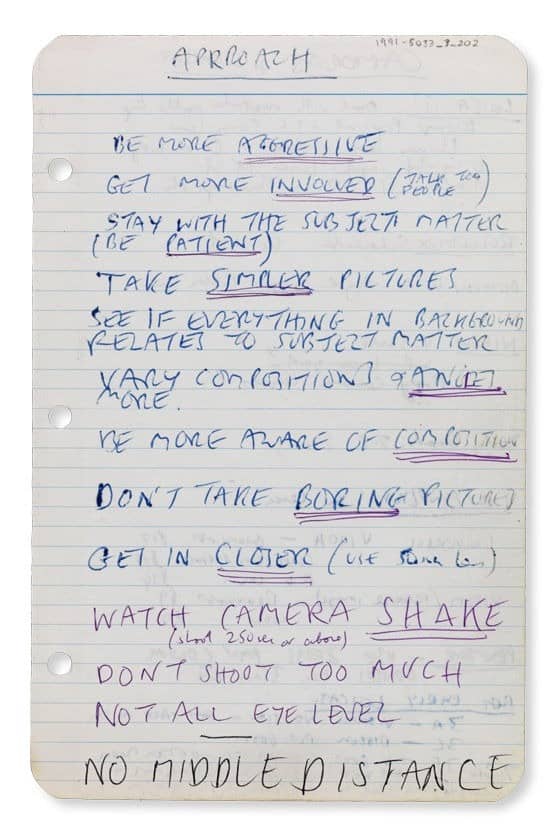 1991-5033_3_202
APPROACH
BE MORE AGGRESSIVE
GET MORE INVOLVED (TALK TOO
PEOPLE)
STAY WITH THE SUBJECT MATTER
(BE PATIENT)
TAKE SIMPLER PICTURES
SEE IF EVERYTHING IN BACKGROUND
RELATES TO SUBJECT MATTER
VARY COMPOSITIONS & ANGLES
MORE.
BE MORE AWARE OF COMPOSITION
DON'T TAKE BORING PICTURES
GET IN CLOSER (USE 50mm lens)
WATCH CAMERA SHAKE
(shoot 250sec or above)
DON'T SHOOT TOO MUCH
NOT ALL EYE LEVEL
NO MIDDLE DISTANCE